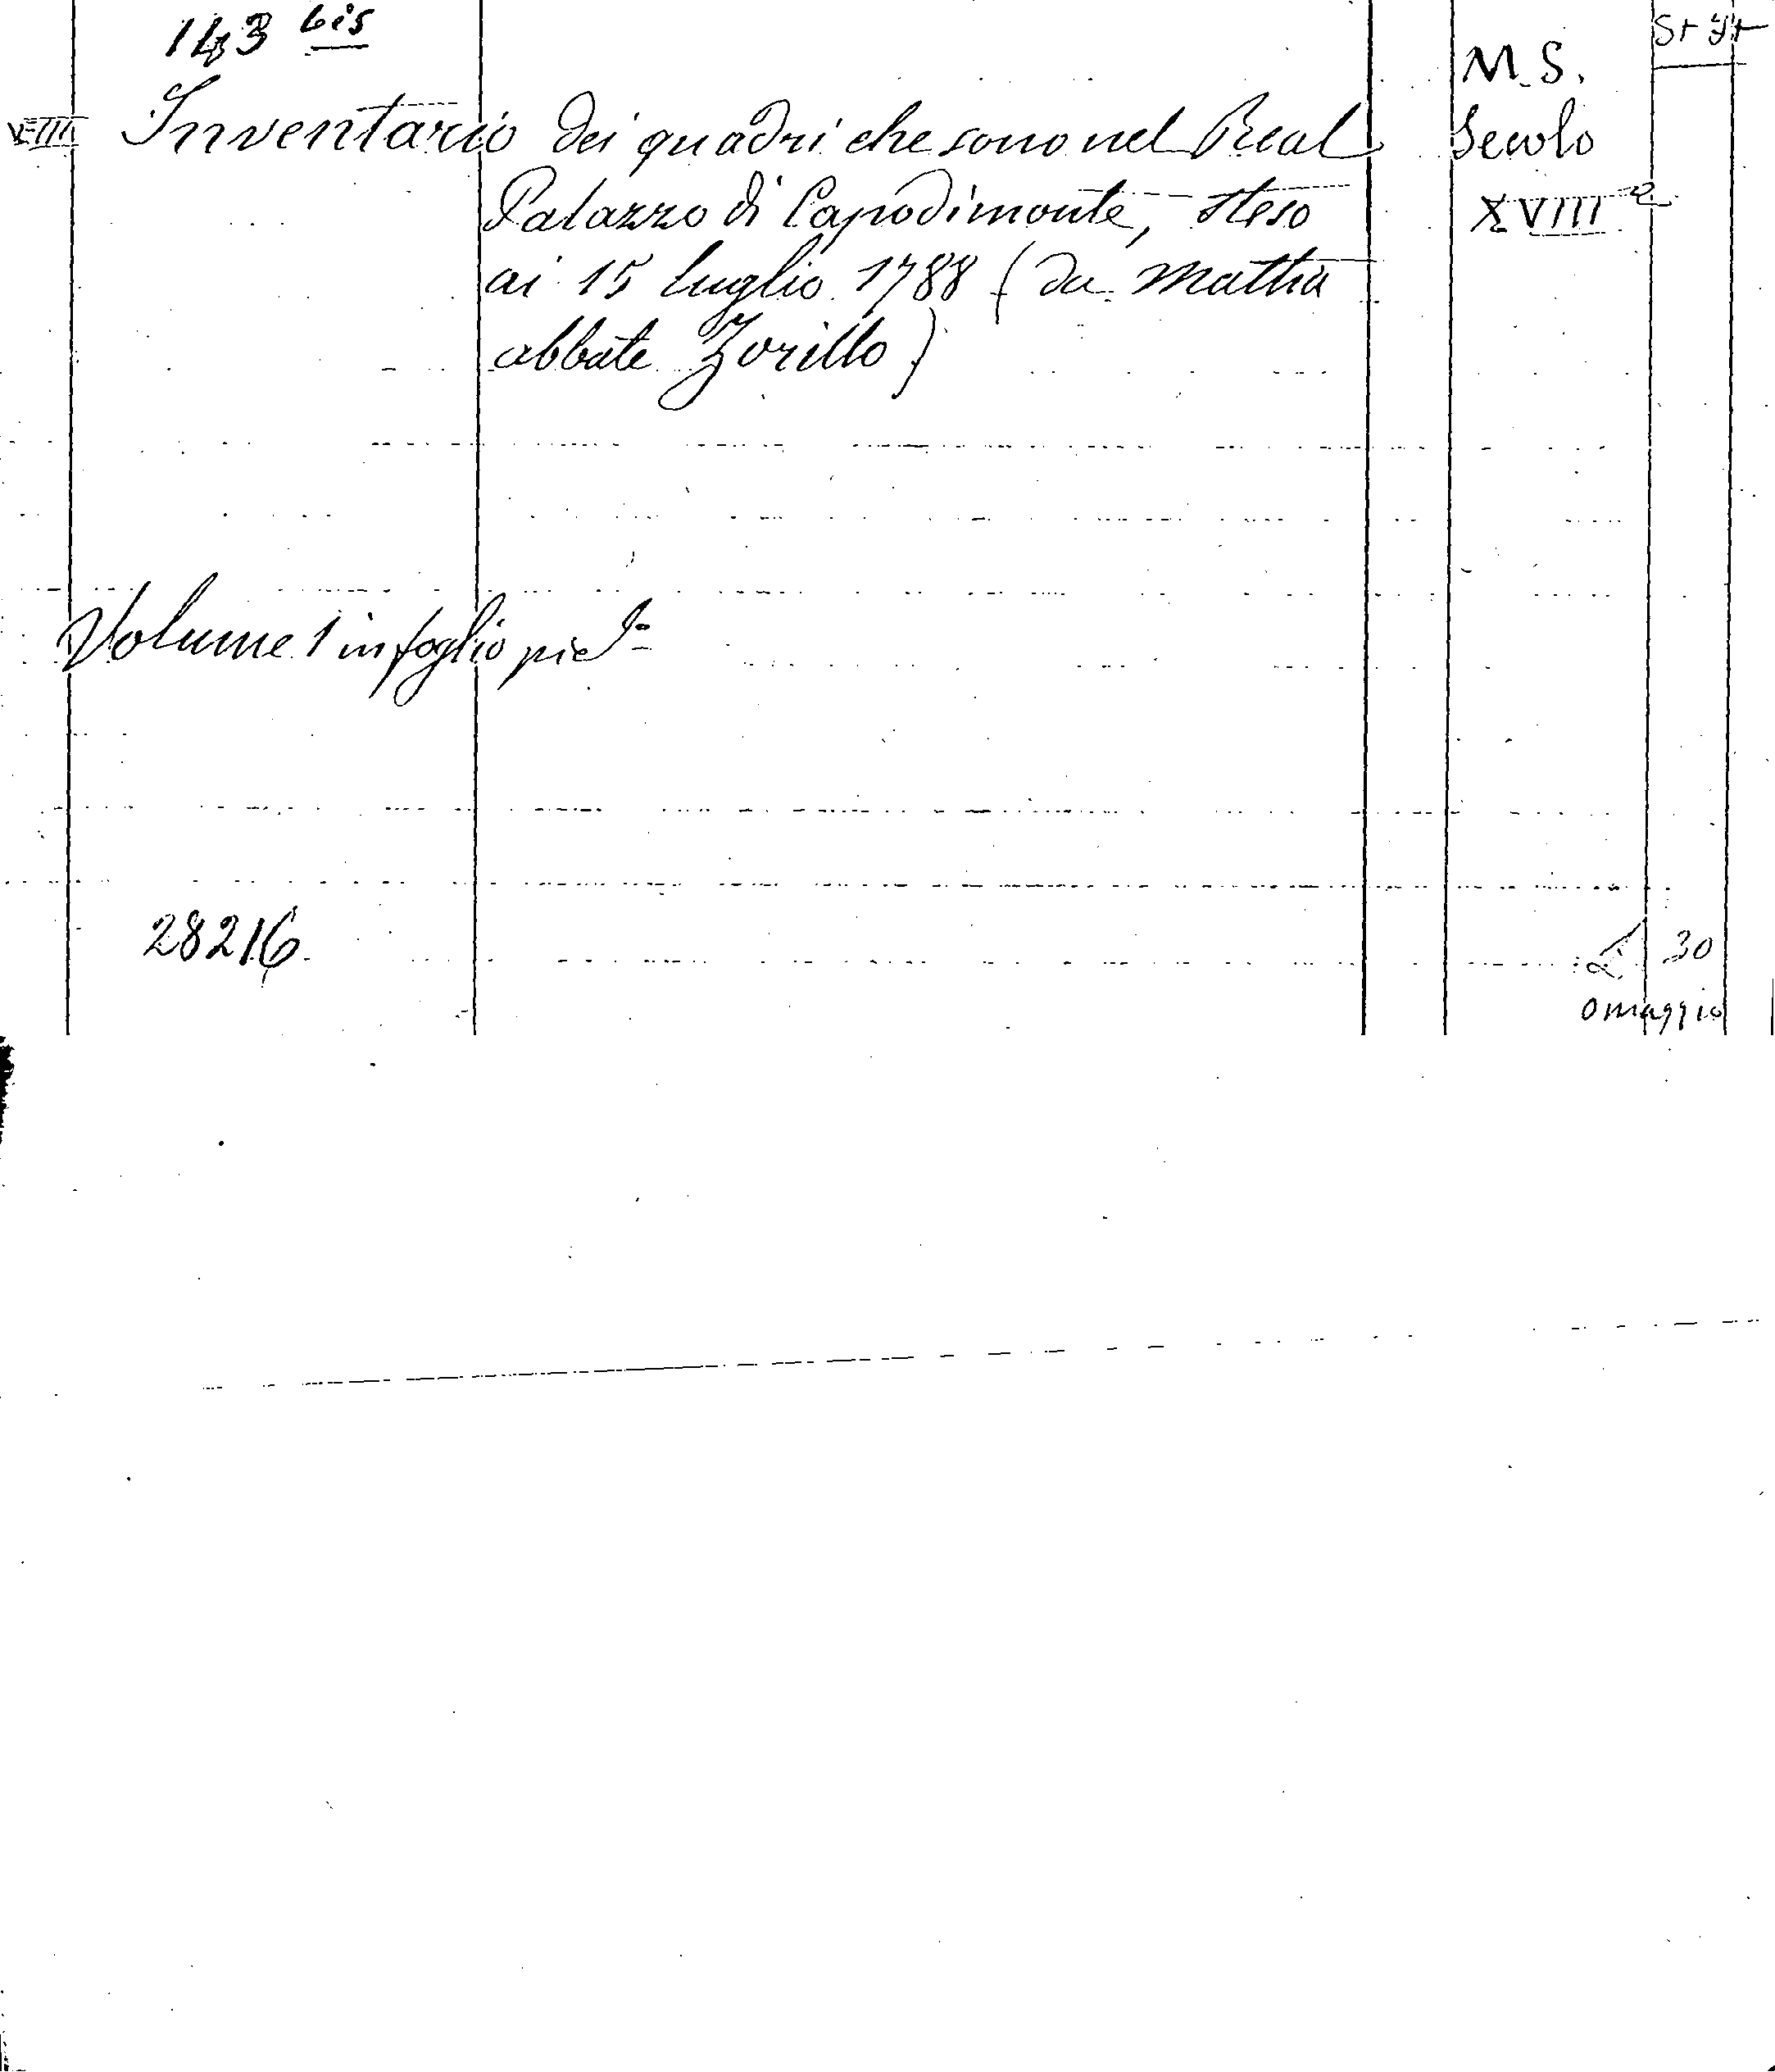 143 bis
M.S.
VIII Inventario dei quadri che sono nel Real Secolo
Palazzo di Capodimonte, steso XVIII
ai 15 luglio 1788 (da Mattia
abbate Zorillo)
Volume 1 in foglio
28216. £ 30
omaggio